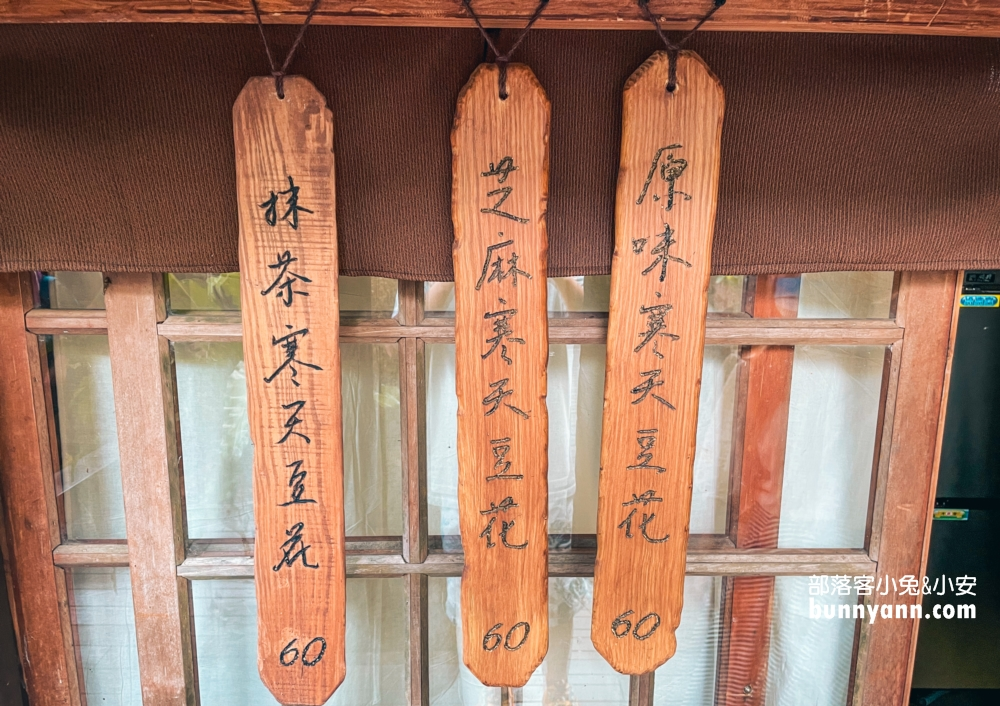 原味寒天豆花
60
芝麻寒天豆花
60
抹茶寒天豆花
60
部落客小兔&小安
bunnyann.com